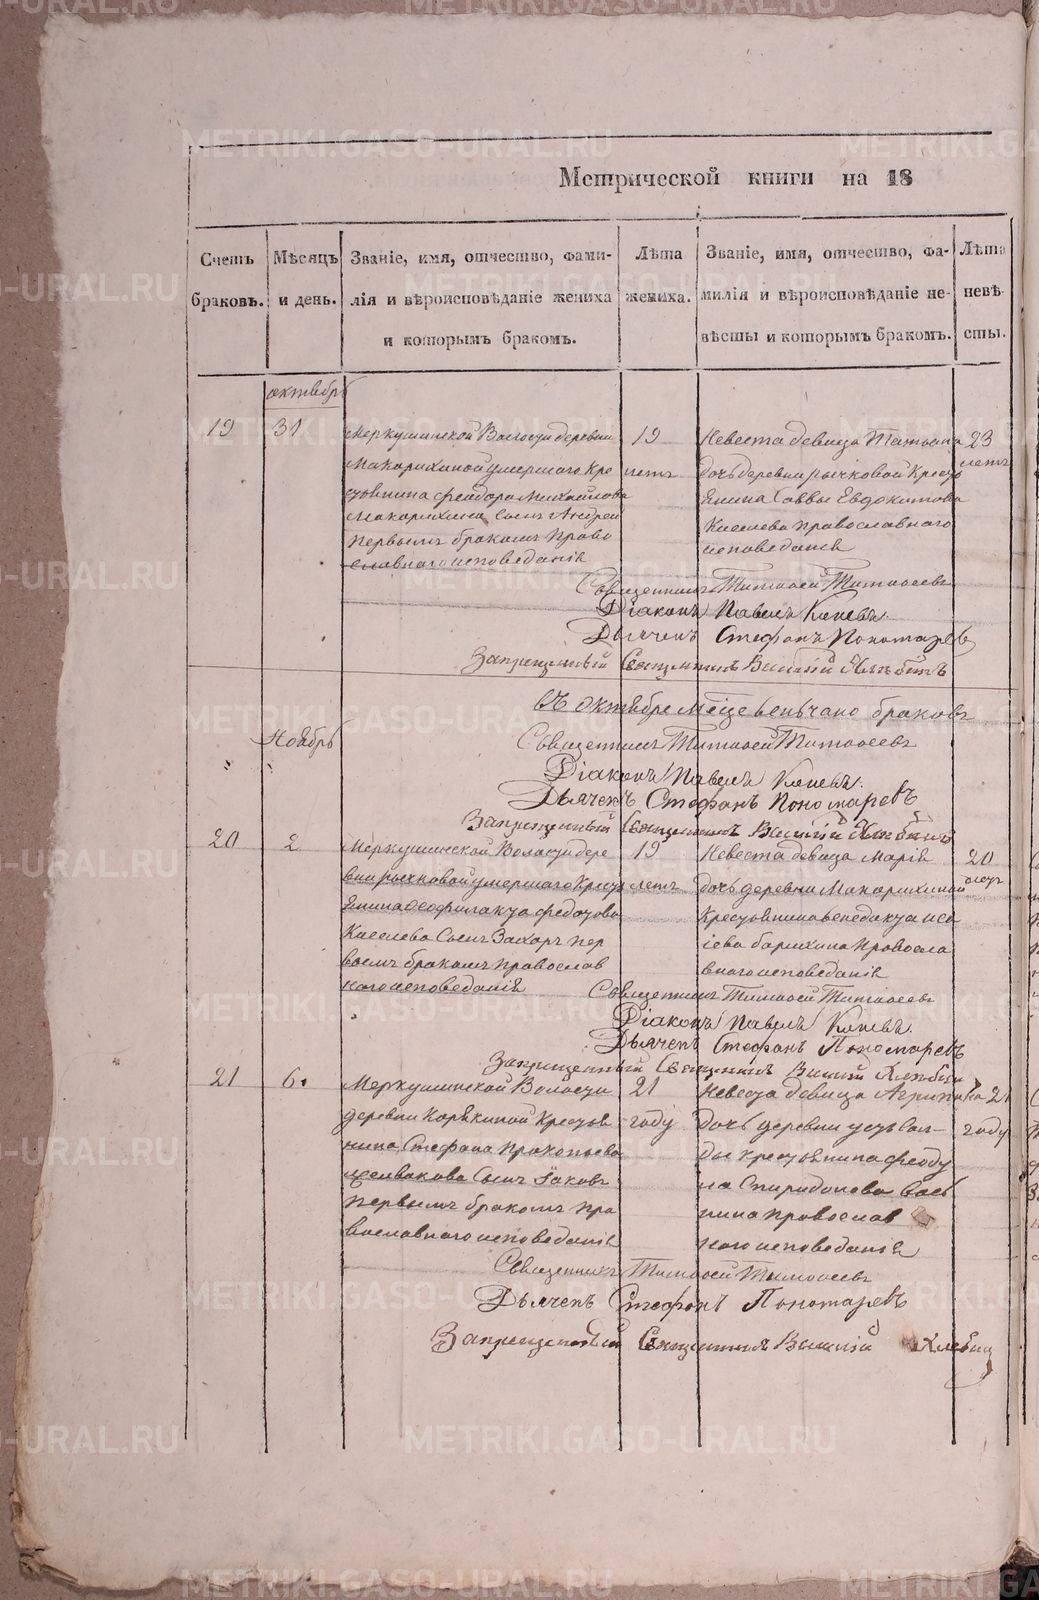 Метрической книги на 18
Счетъ браковъ.
Мѣсяцъ и день.
Званіе, имя, отчество, фами-
лія и вѣроисповѣданіе жениха
и которымъ бракомъ.
Лѣта жениха.
Званіе, имя, отчество, фа-
милія и вѣроисповѣданіе не-
вѣсты и которымъ бракомъ.
Лѣта невѣ-
сты.
октябрь
19
31
Меркушинской Волости деревни
Макарихиной умершаго Кре
стьянина Феодора Михайлова
Макарихина Сынъ Андрей
первымъ бракомъ право
славнаго исповеданія
19
летъ
Невеста девица Татьяна
дочь деревни рычковой Кресть
янина Саввы Евдокимова
Киселева православнаго
исповеданія
23
летъ
Священникъ Тимофей Тимофеевъ
Діаконъ Павелъ Коневъ.
Дьячекъ Стефанъ Пономаревъ
Запрещенный Священникъ Василій
въ октябре месяце венчано браковъ
Священникъ Тимофей Тимофеевъ
Діаконъ Павелъ Коневъ.
Дьячекъ Стефанъ Пономаревъ
Запрещенный Священникъ Василій
Ноябрь
20
2
Меркушинской Волости дере
вни рычковой умершаго Кресть
янина Феофилакта Федотова
Киселева Сынъ Захаръ пер
вымъ бракомъ православ
наго исповеданія
19
летъ
Невеста девица Марія
дочь деревни Макарихиной
Крестьянина Венедикта Иса
іева православ
внаго исповеданія
20
летъ
Священникъ Тимофей Тимофеевъ
Діаконъ Павелъ Коневъ.
Дьячекъ Стефанъ Пономаревъ
Запрещенный Священникъ Василій
21
6.
Меркушинской Волости
деревни Корякиной Крестья
нина Стефана Прокопьева
Сынъ Іаковъ
первымъ бракомъ пра
вославнаго исповеданія
21
году
Невеста девица Агрипина
дочь деревни усть Сал-
ды крестьянина Феоду
ла Спиридонова
православ
наго исповеданія
21
году
Священникъ Тимофей Тимофеевъ
Дьячекъ Стефанъ Пономаревъ
Запрещенный Священникъ Василій
METRIKI.GASO-URAL.RU